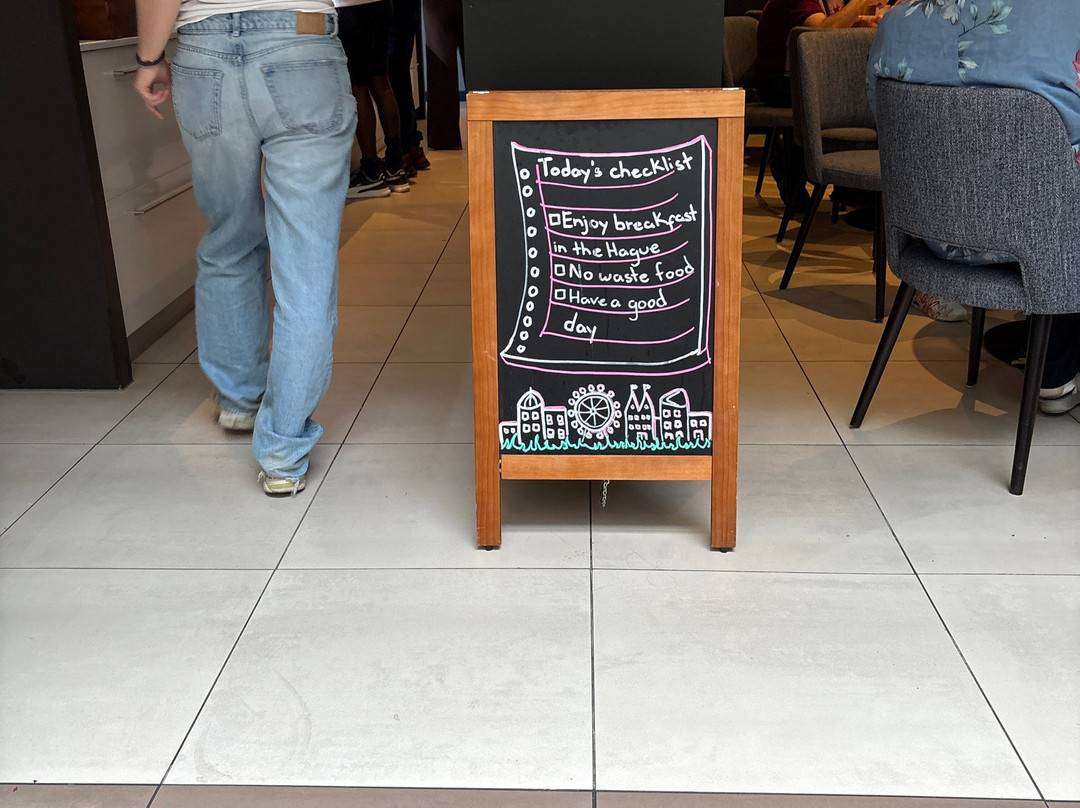 Today's checklist
☐ Enjoy breakfast
in the Hague
☐ No waste food
☐ Have a good
day